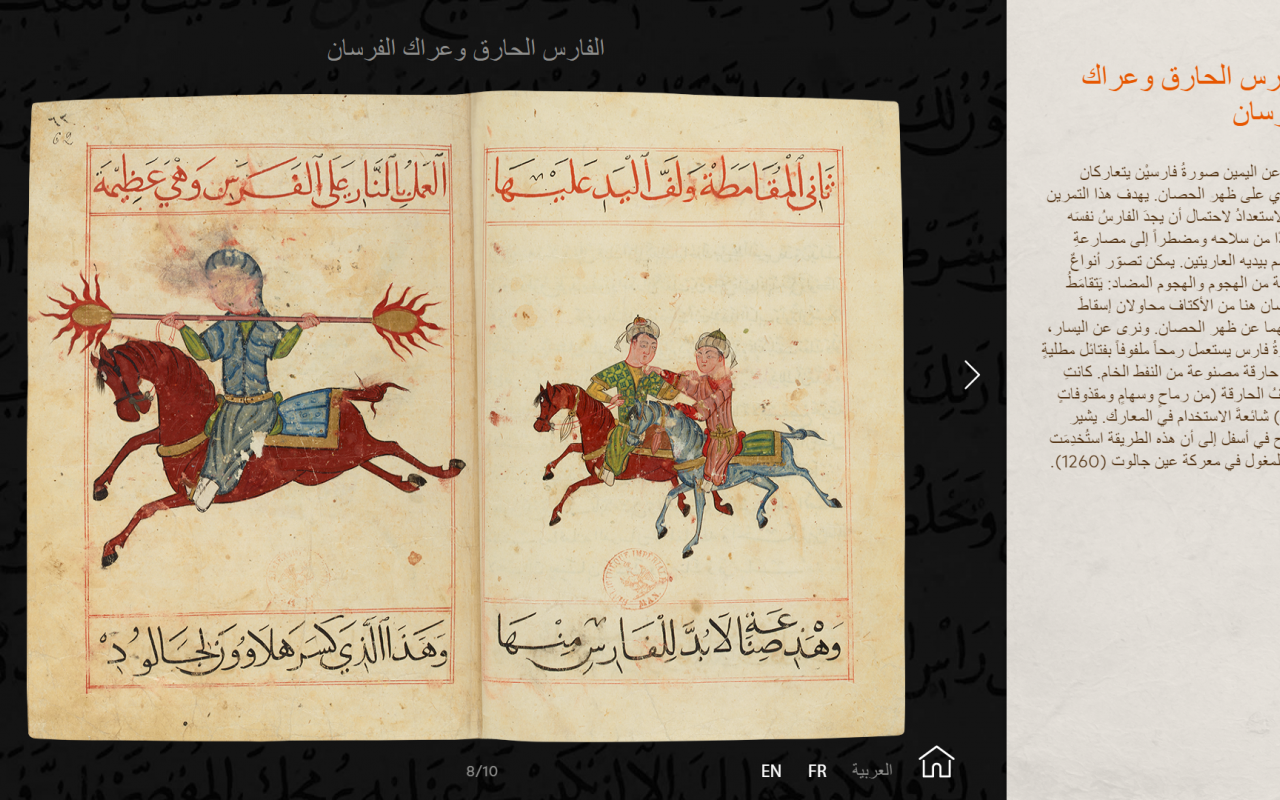 الفارس الحارق وعراك الفرسان
٦٢
62
ثاني المقامطة ولف اليد عليها
وهذه صناعة لا بد للفارس منها
العمل بالنار على الفرس وهي عظيمة
وهذا الذي كسر هلاوون لجالود
8/10
EN FR العربية
رس الحارق وعراك
سان
عن اليمين صورةُ فارسيْن يتعاركان
ي على ظهر الحصان. يهدف هذا التمرين
استعدادُ لاحتمال أن يجدَ الفارسُ نفسَه
من سلاحه ومضطراً إلى مصارعة
م بيديه العاريتين. يمكن تصوّر أنواعٌ
ة من الهجوم والهجوم المضاد: يَتقامَطُ
هنا من الأكتاف محاولان إسقاط
عن ظهر الحصان. ونرى عن اليسار،
ةُ فارس يستعمل رمحاً ملفوفاً بفتائل مطليةٍ
حارقة مصنوعة من النفط الخام. كانتِ
الحارقة (من رماح وسهام ومقذوفاتٍ
) شائعةَ الاستخدام في المعارك. يشير
في أسفل إلى أن هذه الطريقة استُخدِمَت
لمغول في معركة عين جالوت (1260).